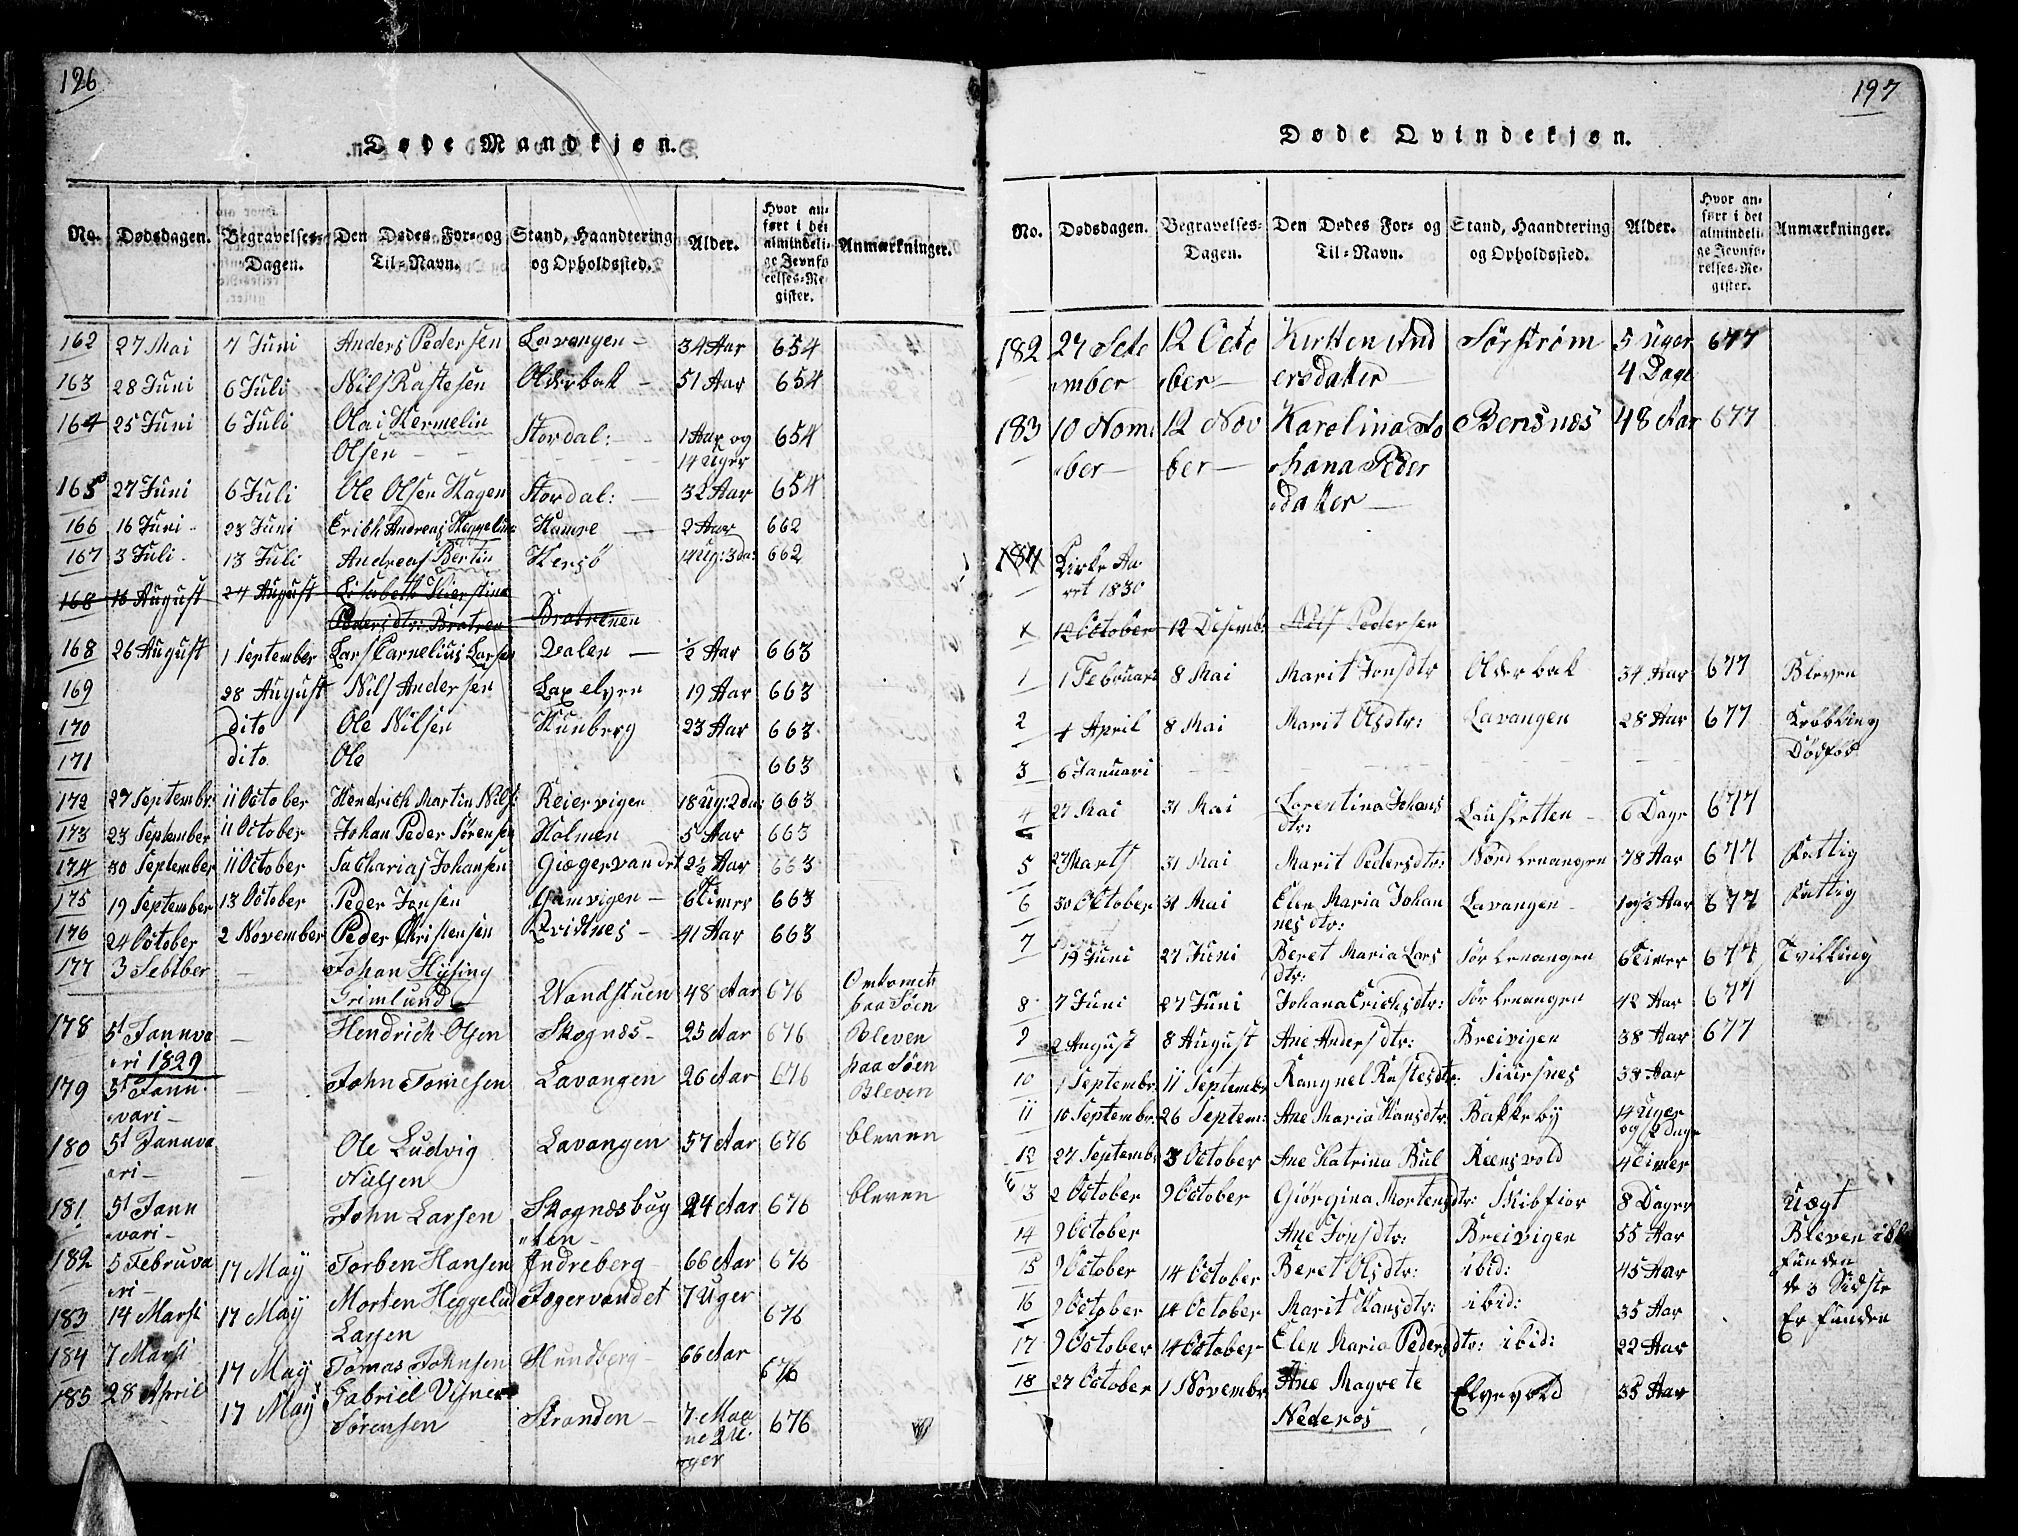 196
Døde Mandkjøn.
No. Dødsdagen. Begravelses-Dagen. Den Dødes For- og Til-Navn. Stand, Haandtering og Opholdssted. Alder. Hvor anført i det almindelige Jevnførelses-Register. Anmærkninger.
162 27 Mai 7 Juni Anders Pedersen Lavangen - 34 Aar 654
163 28 Juni 6 Juli Nils Rastesen Olderbak - 51 Aar 654
164 25 Juni 6 Juli Olai Hermelin
Olsen Stordal: 1 Aar og 654
14 Uger
165 27 Juni 6 Juli Ole Olsen Hagen Stordal: 32 Aar 654
166 16 Juni 23 Juni Erich Andreas Heggelund Hamre 2 Aar 662
167 3 Juli 13 Juli Andreas Bertin Hersö 14 Ug: 3 da: 662
168 18 August 24 August Elisabeth Kierstina
Pedersdtr: Bratren Bratrenen
168 26 August 1 September Lars Carnelius Larsen Dalen ½ Aar 663
169 28 August Nils Andersen Laxelven 19 Aar 663
170 dito Ole Nilsen Hunberg 23 Aar 663
171 dito Ole 663
172 27 Septembr: 11 October Hendrich Martin Nils: Reiervigen 18 Ug: 2 da: 663
173 23 September 11 October Johan Peder Sørensen Holmen 5 Aar 663
174 30 September 11 October Sacharias Johansen Giægervandet 2½ Aar 663
175 19 September 13 October Peder Jonsen Gamvigen - 6 Timer 663
176 24 October 2 November Peder Christensen Qvidtnes - 41 Aar 663
177 3 Sebtber - Johan Hysing
Grimlund Wandstuen 48 Aar 676 Omkomet
paa Søen
178 5t Jannva - Hendrich Olsen Skognæs - 25 Aar 676 Bleven
ari 1829 paa Søen
179 5t Jann - John Tomesen Lavangen 26 Aar 676 Bleven
vari -
180 5t Jannva Ole Ludvig Lavangen 57 Aar 676 bleven
ari - - Nielsen
181 5t Jann John Larsen Skognæsbug 24 Aar 676 bleven
vari - ten -
182 5 Februva 17 May Torben Hansen Indreberg 66 Aar 676
ari -
183 14 Marsi 17 May Morten Heggelud Jægervandet 7 Uger 676
Larsen
184 7 Marsi 17 May Tomas Johnsen Hundberg - 66 Aar 676
185 28 April 17 May Gabriel Visner
Sørensen Stranden - 7 Maa 676
ne 2 U
ger
197
Døde Qvindekjøn.
No. Dødsdagen. Begravelses-Dagen. Den Dødes For- og Til-Navn. Stand, Haandtering og Opholdssted. Alder. Hvor anført i det almindelige Jevnførelses-Register. Anmærkninger.
182 27 Sete 12 Octo Kirsten And Sørstrøm 5 Uger 677
mber ber - ersdatter 4 Dage
183 10 Nom 12 Nov Karolina Jo Bensnæs 48 Aar 677
ber - ber - hana Peder
sdatter -
184 Kirke Aa
ret 1830
x 12 October 12 Desemb: Nils Pedersen
1 1 Februari 8 Mai Marit Jonsdtr Olderbak 34 Aar 677 Bleven
2 4 April 8 Mai Marit Olsdtr: Lavangen 28 Aar 677 Krøbling
3 6 Januari Dödfød
4 27 Mai 31 Mai Lorentina Johans
dtr: Lauksletten - 6 Dage 677
5 27 Marts 31 Mai Marit Pedersdtr: Nord Lenangen 78 Aar 677 Fattig
6 30 October 31 Mai Elen Maria Johan
nesdtr: Lavangen - 19½ Aar 677 Fattig
7 19 Juni 27 Juni Beret Maria Lars
dtr: Sør Lenangen 6 Timer 677 Tvilling
8 7 Juni 27 Juni Johana Erichsdtr: Sør Lenangen 42 Aar 677
9 2 August 8 August Ane Andersdtr: Breivigen 38 Aar 677
10 1 Septembr: 11 Septembr Rangnel Rastesdtr: Siursnes 38 Aar
11 10 Septembr 26 Septem: Ane Maria Hansdtr: Bakkeby 14 Uger
og 2 dage
12 27 Septemb: 3 October Ane Katrina Bul Reensvold 4 Timer
13 2 October 9 October Giörgina Mortensdtr: Skibfior 8 Dager Uægt
14 9 October Ane Jonsdtr: Breivigen 55 Aar Bleven ikke
15 9 October 14 October Beret Olsdtr: ibid: 45 Aar funden
16 9 October 14 October Marit Hansdtr: ibid: 35 Aar de 3 Sidste
17 9 October 14 October Elen Maria Pedersdtr: ibid: 22 Aar Er funden
18 27 October 1 Novembr Ane Magrete Elvevold 35 Aar
Nederos